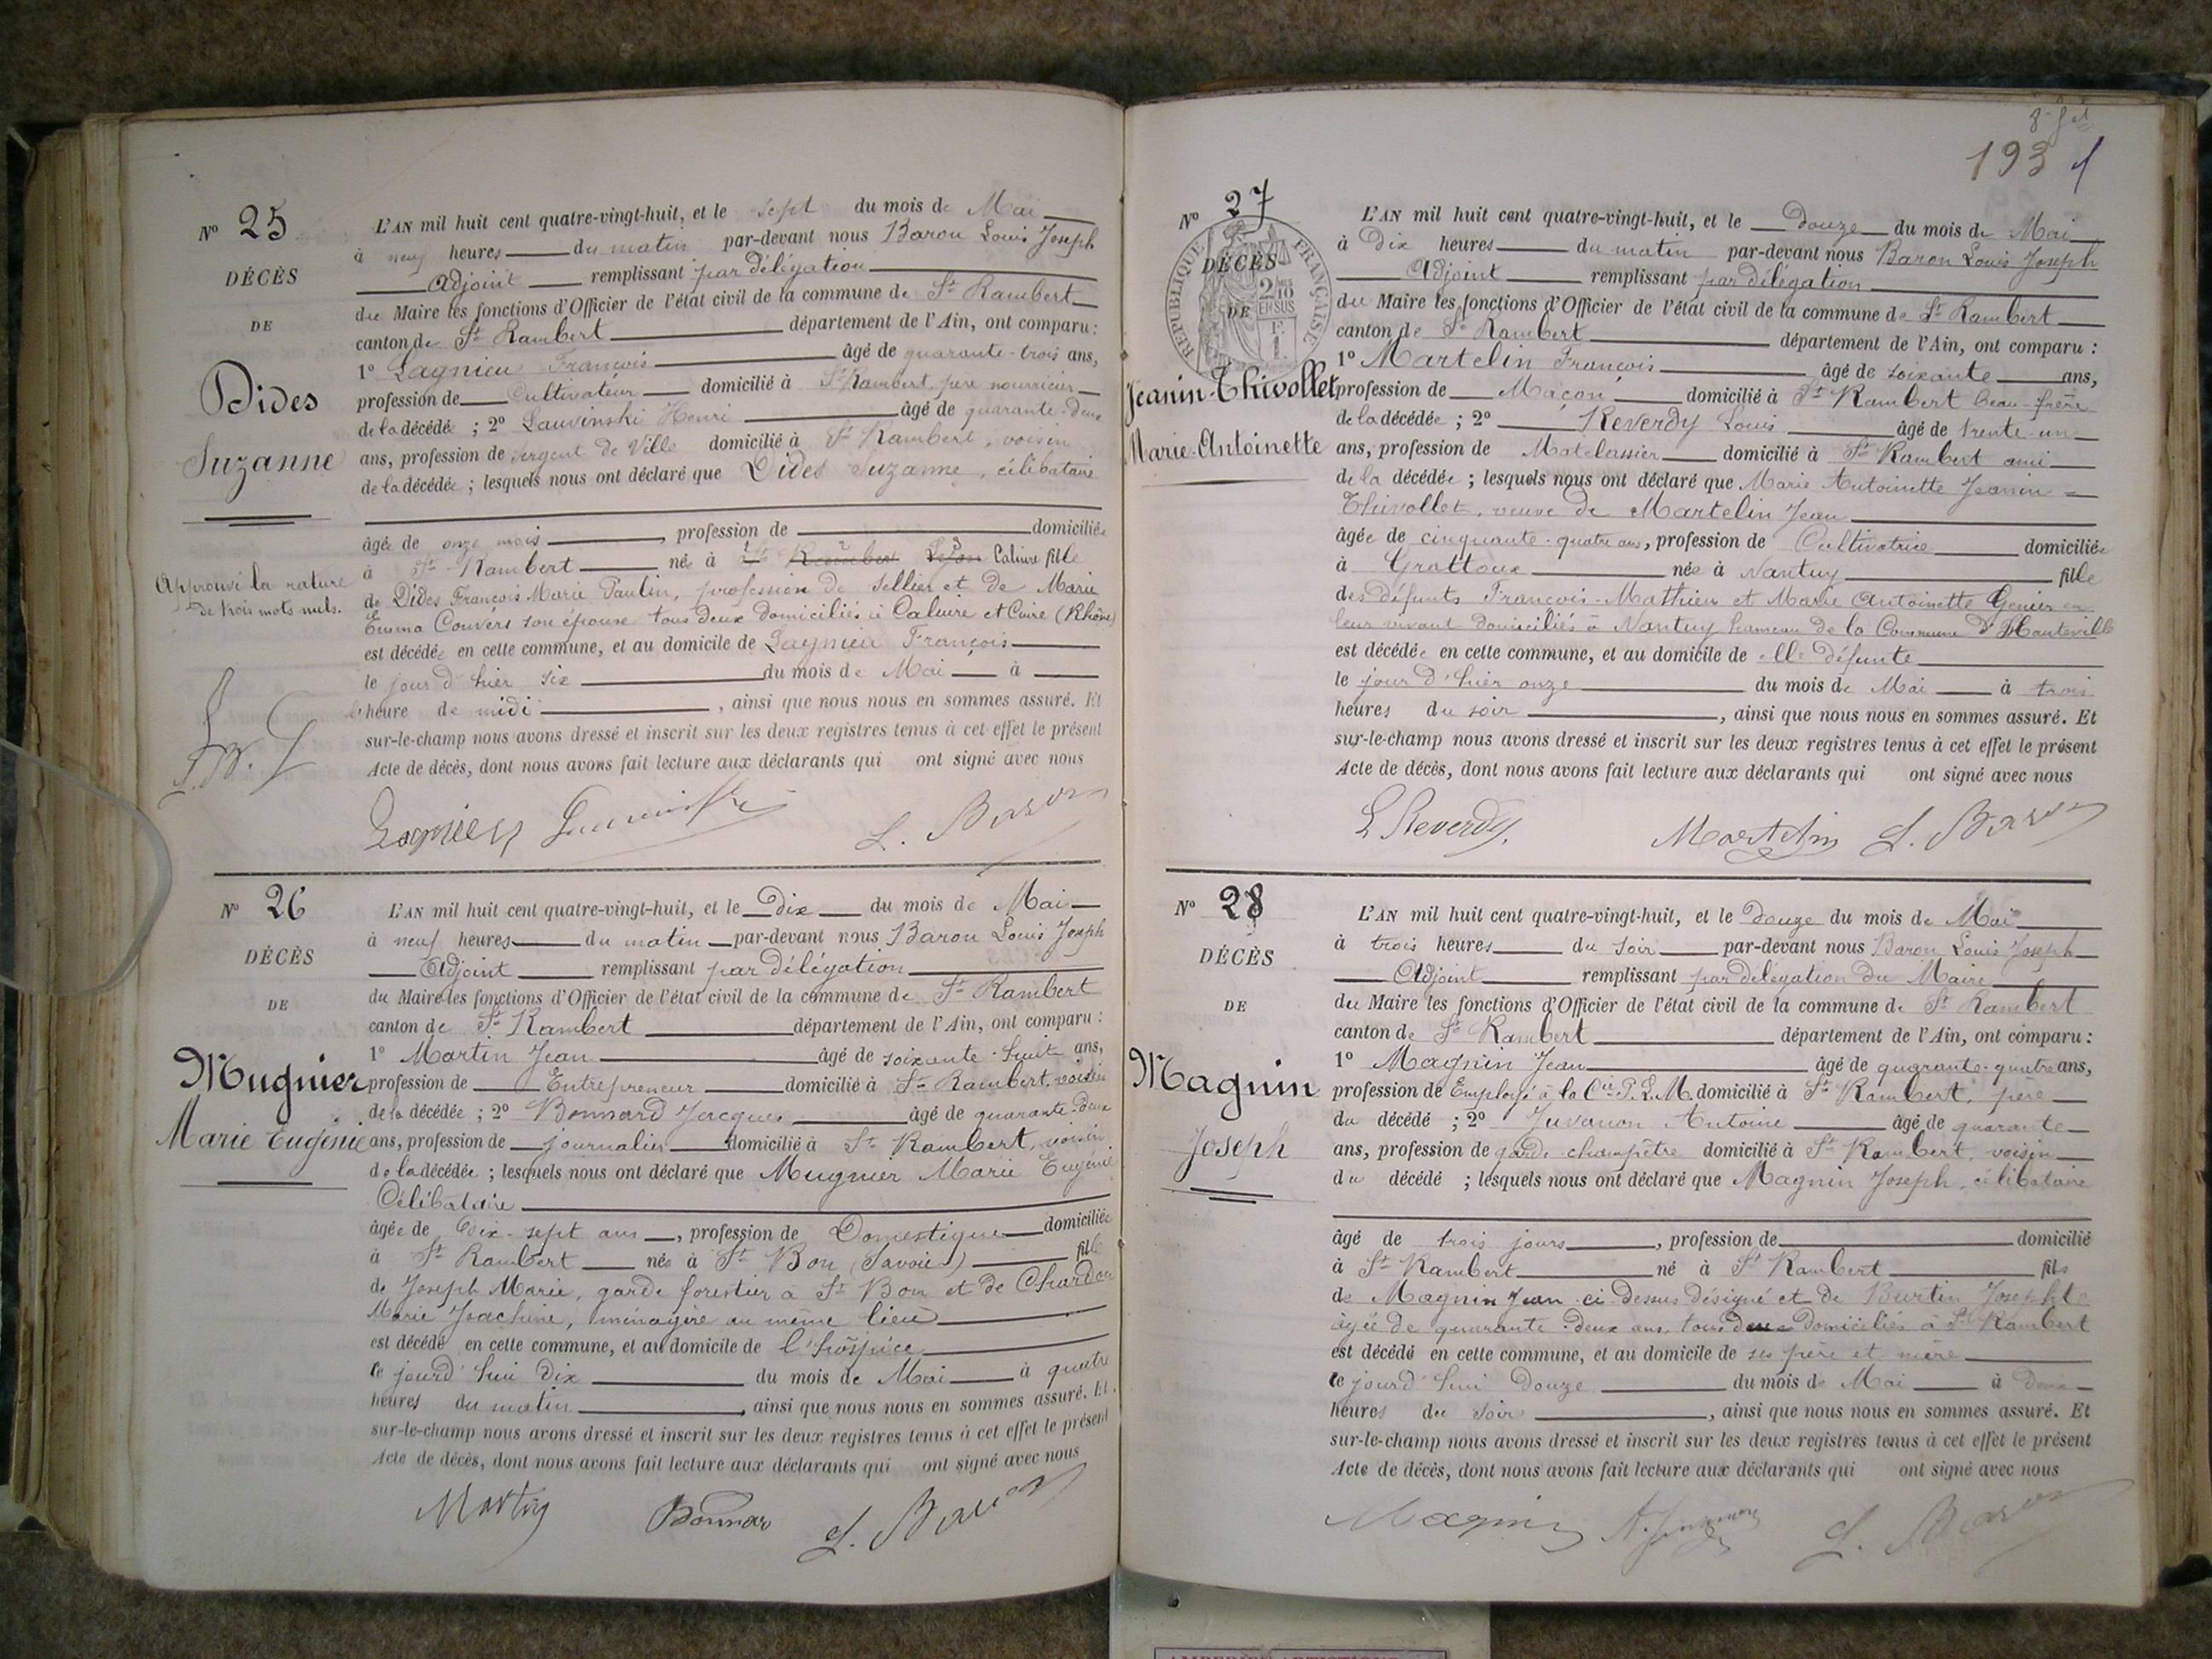 Nº 25
DÉCÈS
DE
Dides
Suzanne
Approuvé la rature
de trois mots nuls.
L'AN mil huit cent quatre-vingt-huit, et le sept du mois de Mai
à neuf heures du matin par-devant nous Baron Louis Joseph
Adjoint remplissant par délégation
du Maire les fonctions d'Officier de l'état civil de la commune de St Rambert
canton de St Rambert département de l'Ain, ont comparu :
1º Lagnieu François âgé de quarante-trois ans,
profession de Cultivateur domicilié à St Rambert, père nourricier
de la décédée ; 2º Lauvinski Henri âgé de quarante-deux
ans, profession de Sergent de Ville domicilié à St Rambert, voisin
de la décédée ; lesquels nous ont déclaré que Dides Suzanne, célibataire
âgée de onze mois, profession de domiciliée
à St Rambert née à St Rambert Lyon Caluire fille
de Dides François Marie Paulin, profession de Sellier et de Marie
Emma Convers son épouse tous deux domiciliés à Caluire et Cuire (Rhône)
est décédée en cette commune, et au domicile de Lagnieu François
le jour d'hier six du mois de Mai à
l'heure de midi, ainsi que nous nous en sommes assuré. Et
sur-le-champ nous avons dressé et inscrit sur les deux registres tenus à cet effet le présent
Acte de décès, dont nous avons fait lecture aux déclarants qui ont signé avec nous
Lagnieu L. Baron
Nº 26
DÉCÈS
DE
Mugnier
Marie Eugénie
L'AN mil huit cent quatre-vingt-huit, et le Dix du mois de Mai
à neuf heures du matin par-devant nous Baron Louis Joseph
Adjoint remplissant par délégation
du Maire les fonctions d'Officier de l'état civil de la commune de St Rambert
canton de St Rambert département de l'Ain, ont comparu :
1º Martin Jean âgé de soixante-huit ans,
profession de Entrepreneur domicilié à St Rambert, voisin
de la décédée ; 2º Bonnard Jacques âgé de quarante-deux
ans, profession de journalier domicilié à St Rambert, voisin
de la décédée ; lesquels nous ont déclaré que Mugnier Marie Eugénie
Célibataire
âgée de Dix-sept ans, profession de Domestique domiciliée
à St Rambert née à St Bon (Savoie) fille
de Joseph Marie, garde forestier à St Bon et de Chardon
Marie Joachine, ménagère au même lieu
est décédé en cette commune, et au domicile de l'hospice
ce jourd'hui Dix du mois de Mai à quatre
heures du matin, ainsi que nous nous en sommes assuré. Et
sur-le-champ nous avons dressé et inscrit sur les deux registres tenus à cet effet le présent
Acte de décès, dont nous avons fait lecture aux déclarants qui ont signé avec nous
Martin Bonnar L. Baron
193
Nº 27
RÉPUBLIQUE FRANÇAISE
DÉCÈS
2 10
EN SUS
DE
Jeanin-Thivollet
Marie-Antoinette
L'AN mil huit cent quatre-vingt-huit, et le Douze du mois de Mai
à Dix heures du matin par-devant nous Baron Louis Joseph
Adjoint remplissant par délégation
du Maire les fonctions d'Officier de l'état civil de la commune de St Rambert
canton de St Rambert département de l'Ain, ont comparu :
1º Martelin François âgé de soixante ans,
profession de Maçon domicilié à St Rambert beau-frère
de la décédée ; 2º Reverdy Louis âgé de trente-un
ans, profession de Matelassier domicilié à St Rambert ami
de la décédée ; lesquels nous ont déclaré que Marie Antoinette Jeanin =
Thivollet, veuve de Martelin Jean
âgée de cinquante-quatre ans, profession de Cultivatrice domiciliée
à Grattoux née à Nantuy fille
des défunts François-Mathieu et Marie Antoinette Genier en
leur vivant domiciliés à Nantuy hameau de la Commune d'Hauteville
est décédée en cette commune, et au domicile de elle défunte
le jour d'hier onze du mois de Mai à trois
heures du soir, ainsi que nous nous en sommes assuré. Et
sur-le-champ nous avons dressé et inscrit sur les deux registres tenus à cet effet le présent
Acte de décès, dont nous avons fait lecture aux déclarants qui ont signé avec nous
L Reverdy. Martelin L. Baron
Nº 28
DÉCÈS
DE
Magnin
Joseph
L'AN mil huit cent quatre-vingt-huit, et le Douze du mois de Mai
à trois heures du soir par-devant nous Baron Louis Joseph
Adjoint remplissant par délégation du Maire
du Maire les fonctions d'Officier de l'état civil de la commune de St Rambert
canton de St Rambert département de l'Ain, ont comparu :
1º Magnin Jean âgé de quarante-quatre ans,
profession de Employé à la Cie P.L.M. domicilié à St Rambert, père
du décédé ; 2º Juvanon Antoine âgé de quarante
ans, profession de garde-champêtre domicilié à St Rambert, voisin
du décédé ; lesquels nous ont déclaré que Magnin Joseph, célibataire
âgé de trois jours, profession de domicilié
à St Rambert né à St Rambert fils
de Magnin Jean ci-dessus désigné et de Burtin Josephte
âgée de quarante-deux ans, tous deux domiciliés à St Rambert
est décédé en cette commune, et au domicile de ses père et mère
ce jourd'hui Douze du mois de Mai à Deux
heures du soir, ainsi que nous nous en sommes assuré. Et
sur-le-champ nous avons dressé et inscrit sur les deux registres tenus à cet effet le présent
Acte de décès, dont nous avons fait lecture aux déclarants qui ont signé avec nous
Magnin A. Juvanon L. Baron